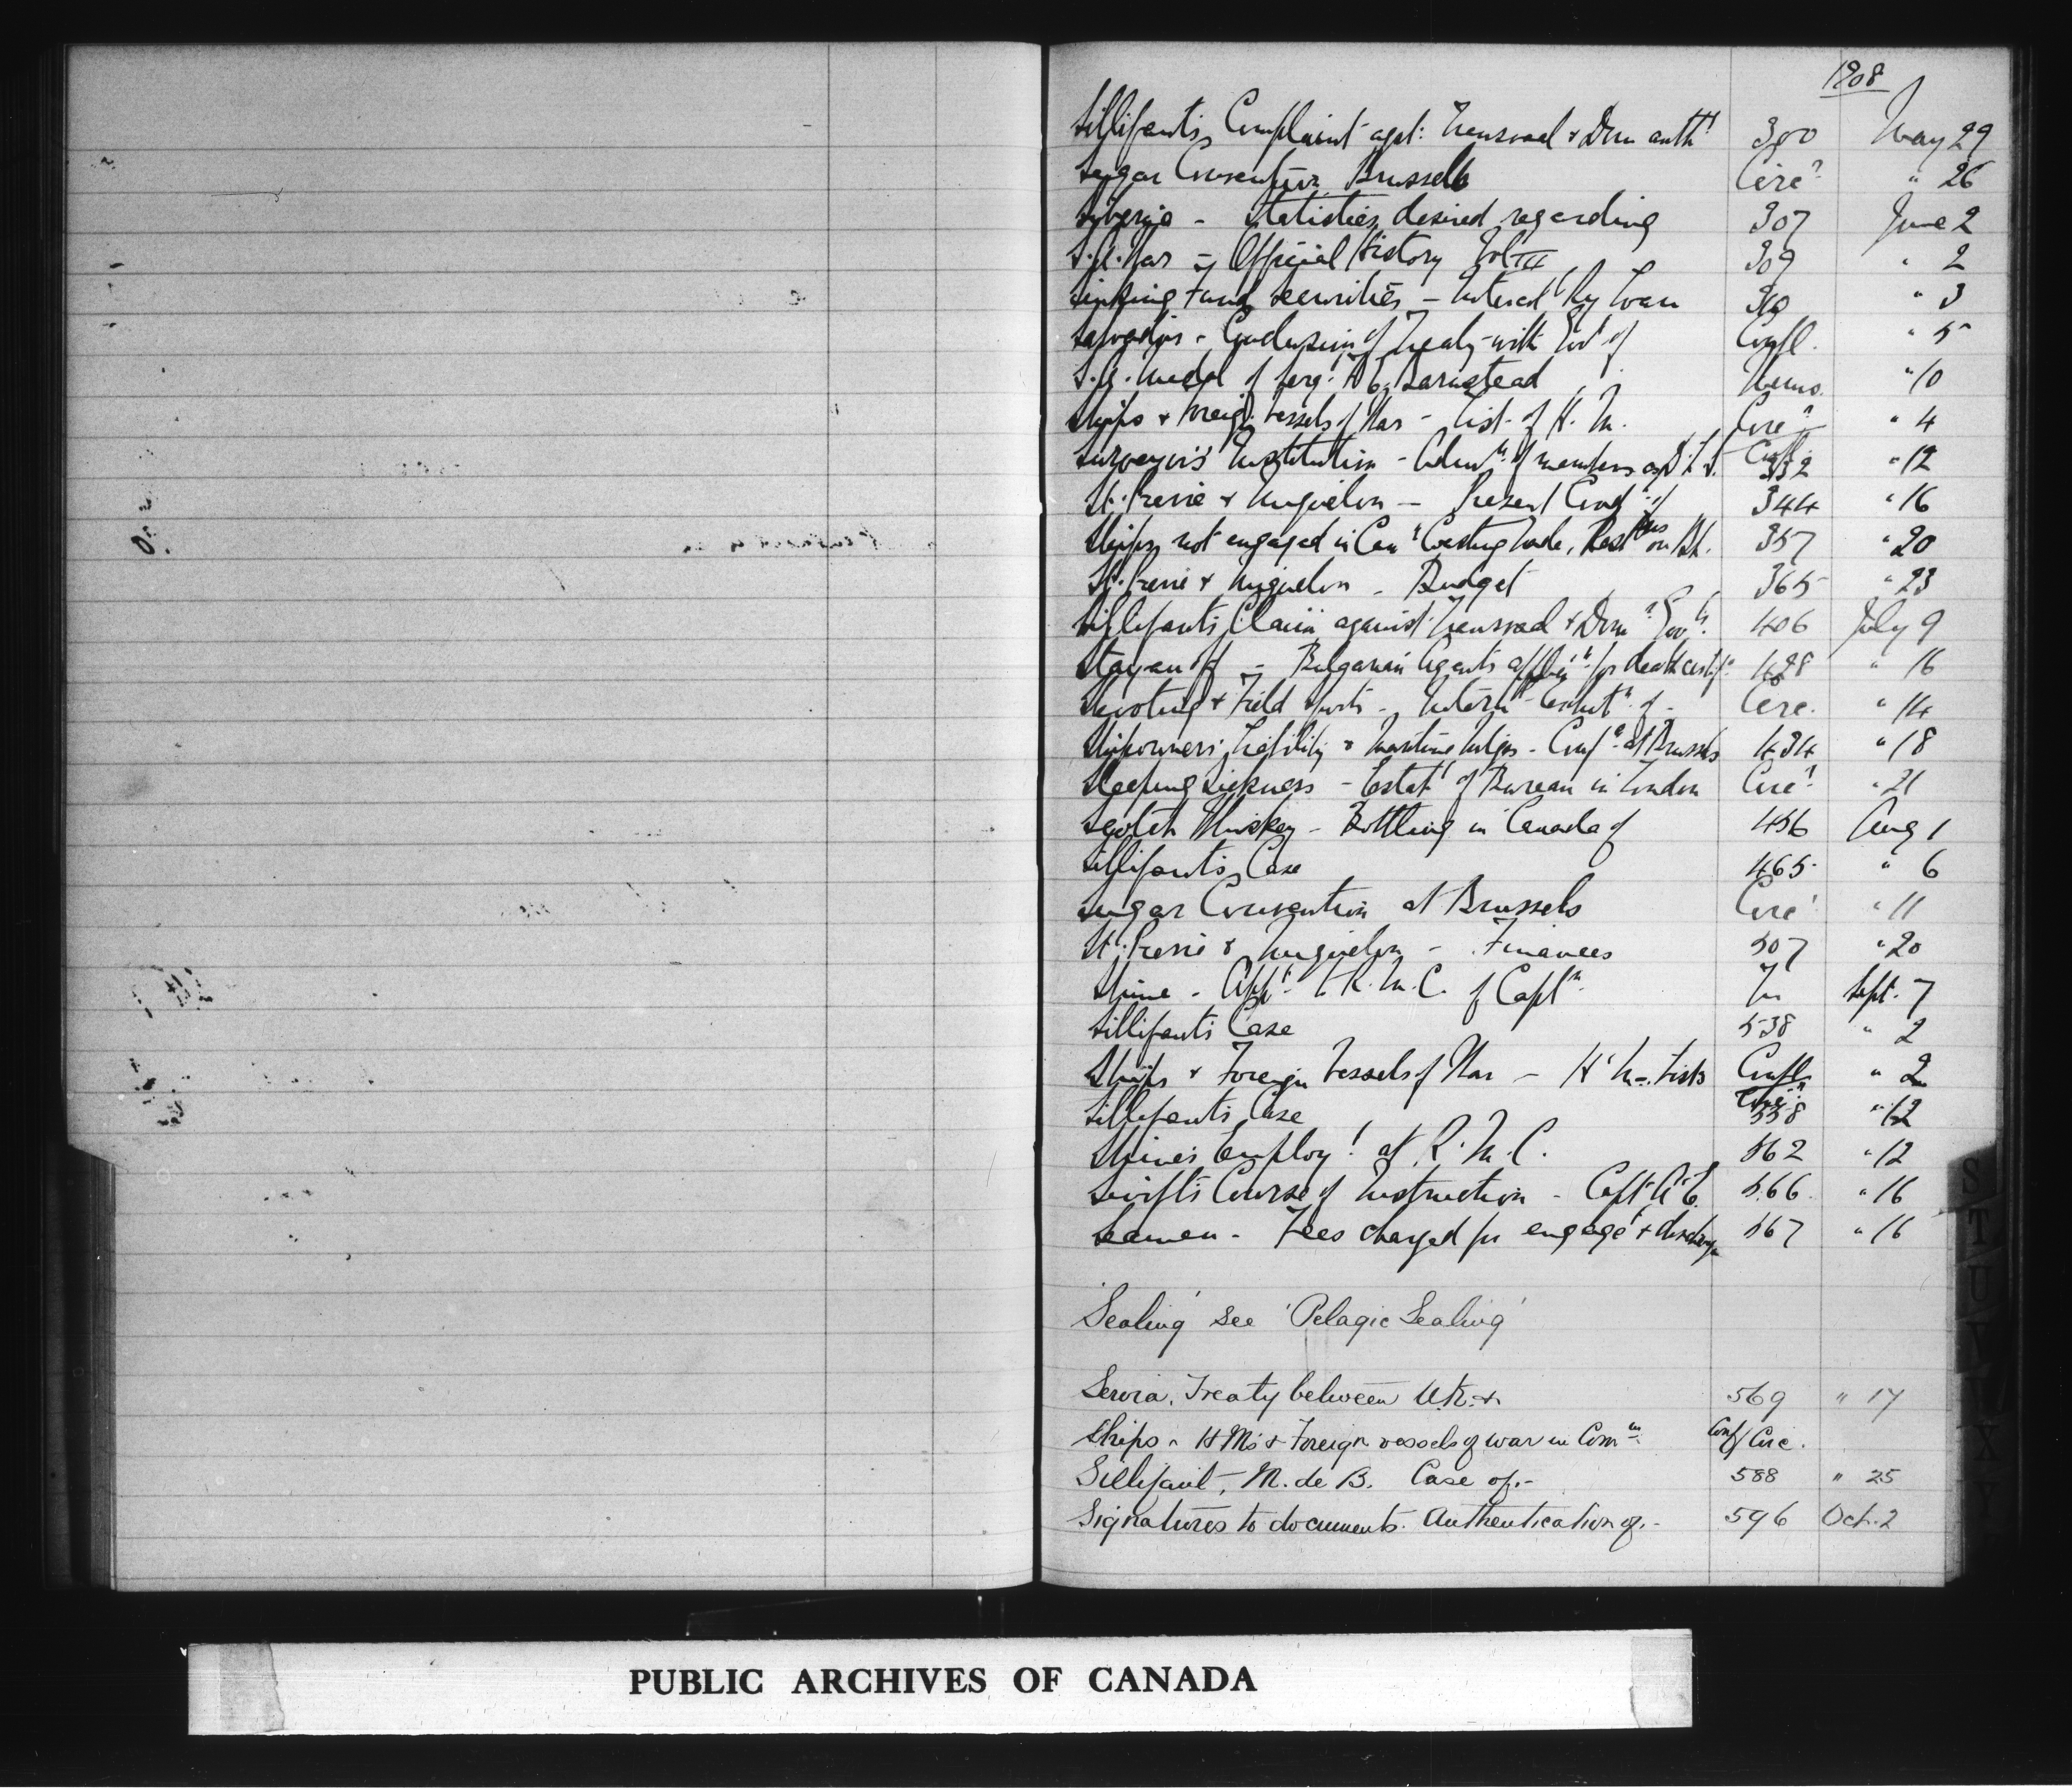 1908
Sillifants Complaint agst: Transvaal & Dom auth 300 May 29
Sugar Convention Brussels Circ " 26
Siberia - Statistics desired regarding 307 June 2
S.A. War - Official History Vol III 309 " 2
Sinking Fund Securities - Intercol Ry Loan 310 " 3
Salvador - Conclusion of Treaty with Govt of Confl. " 5
S.A. Medal of Serg: Barnstead Memo. " 10
Ships & Foreign Vessels of War - List of H.M. Circ Confl " 4
Surveyor's Institution - Admn of members as D.L.S. 332 " 12
St. Pierre & Miquelon - Present Condn of 344 " 16
Ships not engaged in Can Coasting trade, Restns on Br. 357 " 20
St. Pierre & Miquelon - Budget 365 " 23
Sillifants Claim against Transvaal & Dom Govts. 406 July 9
Stoyanoff - Bulgarian Agents appn for death certif 428 " 16
Shooting & Field Sports - Intern Exhibtn of - Circ. " 14
Shipowners Liability & Maritime Mtges - Confce at Brussels 434 " 18
Sleeping Sickness - Estabt of Bureau in London Circ " 21
Scotch Whiskey - Bottling in Canada of 456 Aug 1
Sillifants Case 465 " 6
Sugar Convention at Brussels Circ " 11
St. Pierre & Miquelon - Finances 507 " 20
Shine - Appt to R.M.C. of Captn Sept. 7
Sillifants Case 538 " 2
Ships & Foreign Vessels of War - H.M. Lists Confl Circ " 2
Sillifants Case 558 " 12
Shine's Employt at R.M.C. 562 " 12
Swift's Course of Instruction - Capt. A.E. 566 " 16
Seamen - Fees charged for engaget & discharge 567 " 16
'Sealing' see 'Pelagic Sealing'
Servia. Treaty between U.K. & 569 " 17
Ships - H Ms & Foreign vessels of war in Comn Conf Circ.
Sillifant, M. de B. Case of.- 588 " 25
Signatures to documents. Authentication of.- 596 Oct. 2
S
T
U
V
X
PUBLIC ARCHIVES OF CANADA